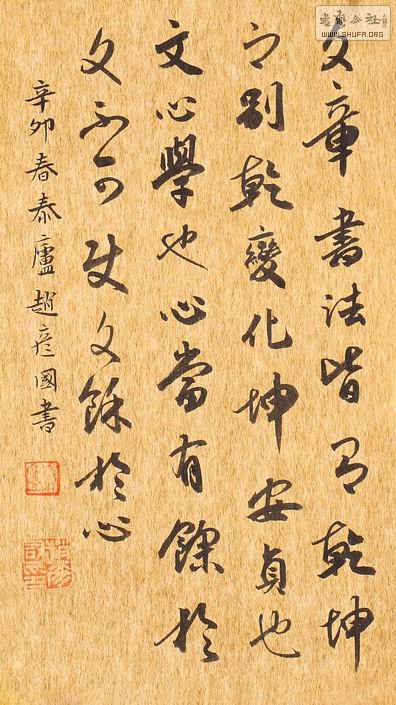 書藝公社
WWW.SHUFA.ORG
文章書法皆有乾坤
之別乾變化坤安貞也
文心學也心當有餘於
文不可使文餘於心
辛卯春泰廬趙彥國書